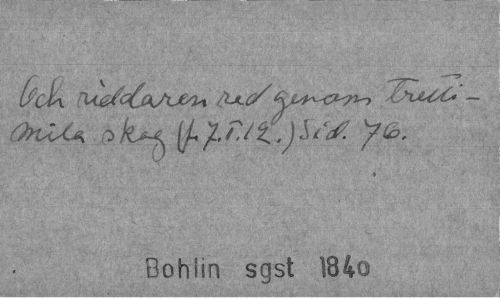 Och riddaren red genom tretti-
mila skog (f. 7.I.12.) Sid. 76.
Bohlin sgst 1840